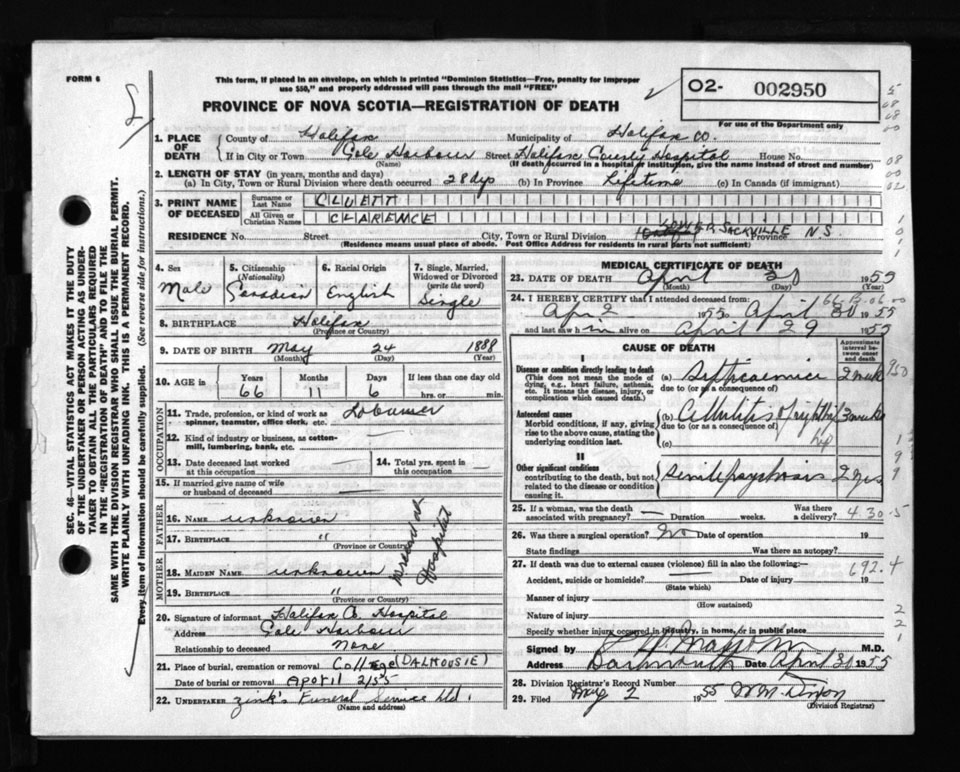 FORM 6
This form, if placed in an envelope, on which is printed "Dominion Statistics—Free, penalty for improper
use $50," and properly addressed will pass through the mail "FREE"
O2- 002950
For use of the Department only
PROVINCE OF NOVA SCOTIA—REGISTRATION OF DEATH
SEC. 46—VITAL STATISTICS ACT MAKES IT THE DUTY
OF THE UNDERTAKER OR PERSON ACTING AS UNDER-
TAKER TO OBTAIN ALL THE PARTICULARS REQUIRED
IN THE "REGISTRATION OF DEATH" AND TO FILE THE
SAME WITH THE DIVISION REGISTRAR WHO SHALL ISSUE THE BURIAL PERMIT.
WRITE PLAINLY WITH UNFADING INK. THIS IS A PERMANENT RECORD.
Every item of information should be carefully supplied. (See reverse side for instructions.)
1. PLACE OF DEATH County of Halifax Municipality of Halifax Co.
If in City or Town Cole Harbour Street Halifax County Hospital House No.
(Name) (If death occurred in a hospital or institution, give the name instead of street and number)
2. LENGTH OF STAY (in years, months and days)
(a) In City, Town or Rural Division where death occurred 28 dys (b) In Province Lifetime (c) In Canada (if immigrant)
3. PRINT NAME OF DECEASED Surname or Last Name CLUETT
All Given or Christian Names CLARENCE
RESIDENCE No. Street City, Town or Rural Division LOWER SACKVILLE Province N.S.
(Residence means usual place of abode. Post Office Address for residents in rural parts not sufficient)
4. Sex Male
5. Citizenship (Nationality) Canadian
6. Racial Origin English
7. Single, Married, Widowed or Divorced (write the word) Single
8. BIRTHPLACE Halifax
(Province or Country)
9. DATE OF BIRTH May 24 1888
(Month) (Day) (Year)
10. AGE in Years 66 Months 11 Days 6 If less than one day old hrs. or min.
OCCUPATION
11. Trade, profession, or kind of work as spinner, teamster, office clerk, etc. Labourer
12. Kind of industry or business, as cotton-mill, lumbering, bank, etc. —
13. Date deceased last worked at this occupation —
14. Total yrs. spent in this occupation —
15. If married give name of wife or husband of deceased —
FATHER
16. NAME unknown
17. BIRTHPLACE "
(Province or Country)
MOTHER
18. MAIDEN NAME unknown
19. BIRTHPLACE "
(Province or Country)
no record at Hospital
20. Signature of informant Halifax Co. Hospital
Address Cole Harbour
Relationship to deceased None
21. Place of burial, cremation or removal College (DALHOUSIE)
Date of burial or removal
22. UNDERTAKER Zink's Funeral Service Ltd.
(Name and address)
MEDICAL CERTIFICATE OF DEATH
23. DATE OF DEATH April 30 1955
(Month) (Day)
24. I HEREBY CERTIFY that I attended deceased from:
Apr 2 1955 to April 30 1955
and last saw him alive on April 29 1955
CAUSE OF DEATH
Approximate interval between onset and death
I
Disease or condition directly leading to death
(This does not mean the mode of dying, e.g., heart failure, asthenia, etc. It means the disease, injury, or complication which caused death.)
(a) Septicaemia 2 weeks
due to (or as a consequence of)
Antecedent causes
Morbid conditions, if any, giving rise to the above cause, stating the underlying condition last.
(b) Cellulitis of right hip 3 weeks
due to (or as a consequence of)
(c)
II
Other significant conditions
contributing to the death, but not related to the disease or condition causing it.
Senile psychosis 2 yrs
25. If a woman, was the death associated with pregnancy? — Duration weeks. Was there a delivery?
26. Was there a surgical operation? No Date of operation 19
State findings Was there an autopsy?
27. If death was due to external causes (violence) fill in also the following:— 692.4
Accident, suicide or homicide? Date of injury 19
(State which)
Manner of injury
(How sustained)
Nature of injury
Specify whether injury occurred in industry, in home, or in public place
Signed by M.D.
Address Dartmouth Date April 30 1955
28. Division Registrar's Record Number
29. Filed May 2 1955 W.M. Dixon
(Division Registrar)